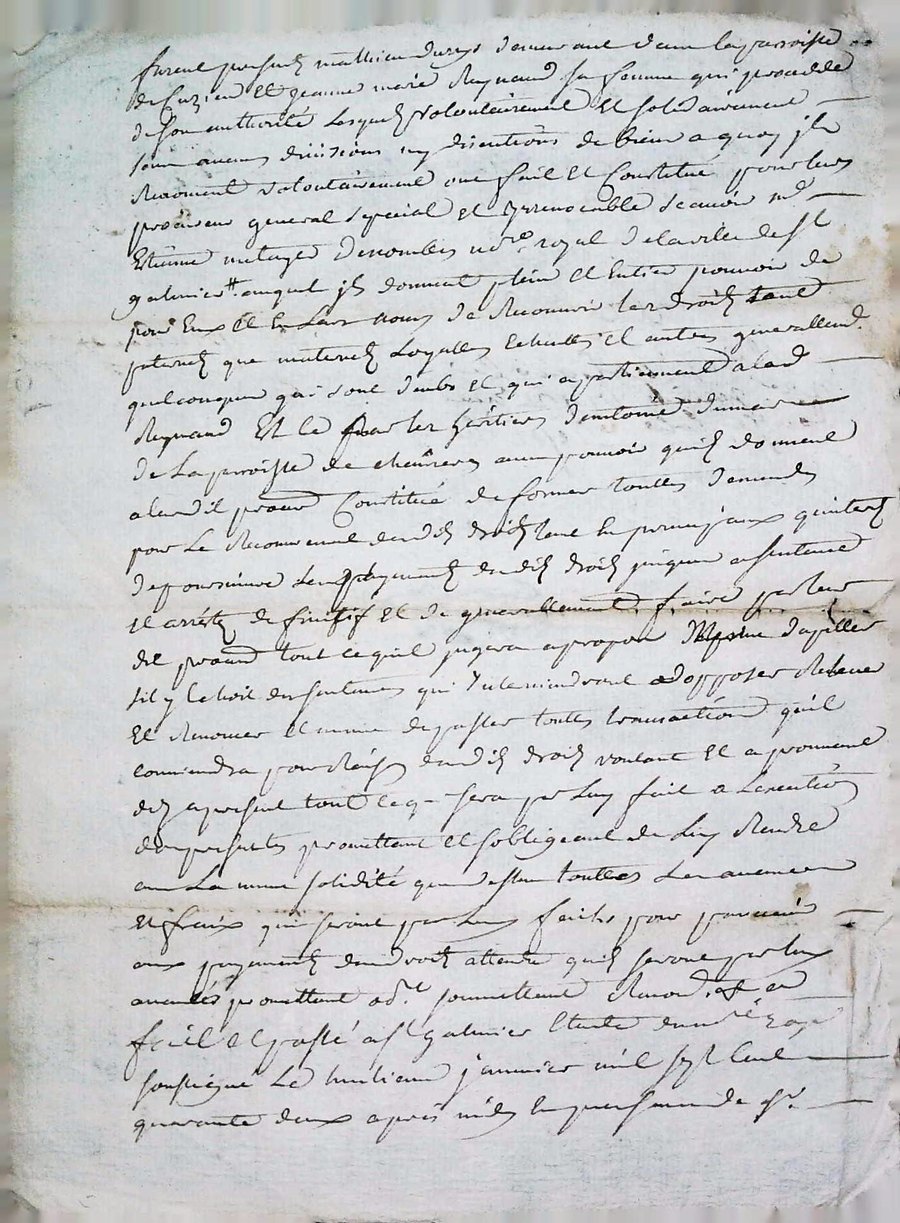 furent presents mathieu durys demeurant dans la parroisse
de Cuzieu Et jeanne marie Reynaud sa femme qui procedde
de son authorité Lesquels volontairement Et solidairement
sans aucuns divisions ny discutions de biens a quoy ils
Renoncent volontairement ont fait Et Constitué pour leurs
procureur general special Et Irrevocable scavoir me
Etienne des nombres no.re royal de la ville de st
galmier auquel ils donnent plein Et Entier pouvoir de
pour Eux Et En Leurs noms de Recouvrir les droits tant
paternels que maternels Loyalles Echuttes et autres generallement
quelconques qui sont deubs Et qui apartiennent a lad
Reynaud Et ce par les heritiers d'antoine dumas
de La parroisse de chevrieres avec pouvoir quils donnent
aleurdit procur Constitué de former touttes demandes
pour Le Recouvrement desdits droits tant En principaux quinterets
de poursuivre Les payements desdits droits jusques a sentence
Et arrests definitif Et de generallement faire par leur
dit procur tout ce quil jugera apropos mesme dapeller
sil y Echoit des sentences qui Interviendront odopposer
Et Renoncer Et mesme de passer touttes transactions quil
conviendra pour Raison desdits droits voulant Et aprouvent
des apresent tout ce q sera par Luy fait a Lexecution
des presentes promettant Et sobligeant de Luy Rendre
avec La meme solidité que dessus touttes Les avances
Et fraix qui seront par Luy faits pour parvenir
aux payements desd droits attendu quils seront par luy
avancés promettant soumettant Renon
fait Et passé a st galmier Etude du no.re royal
soussigné Le huitieme janvier mil sept Cent
quarante deux apres midy En presence de sr.